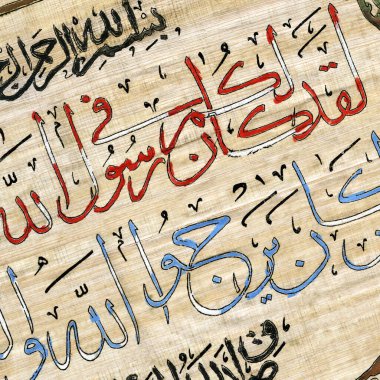 بسم الله الرحمن
لقد كان لكم في رسول الله
كان يرجوا الله